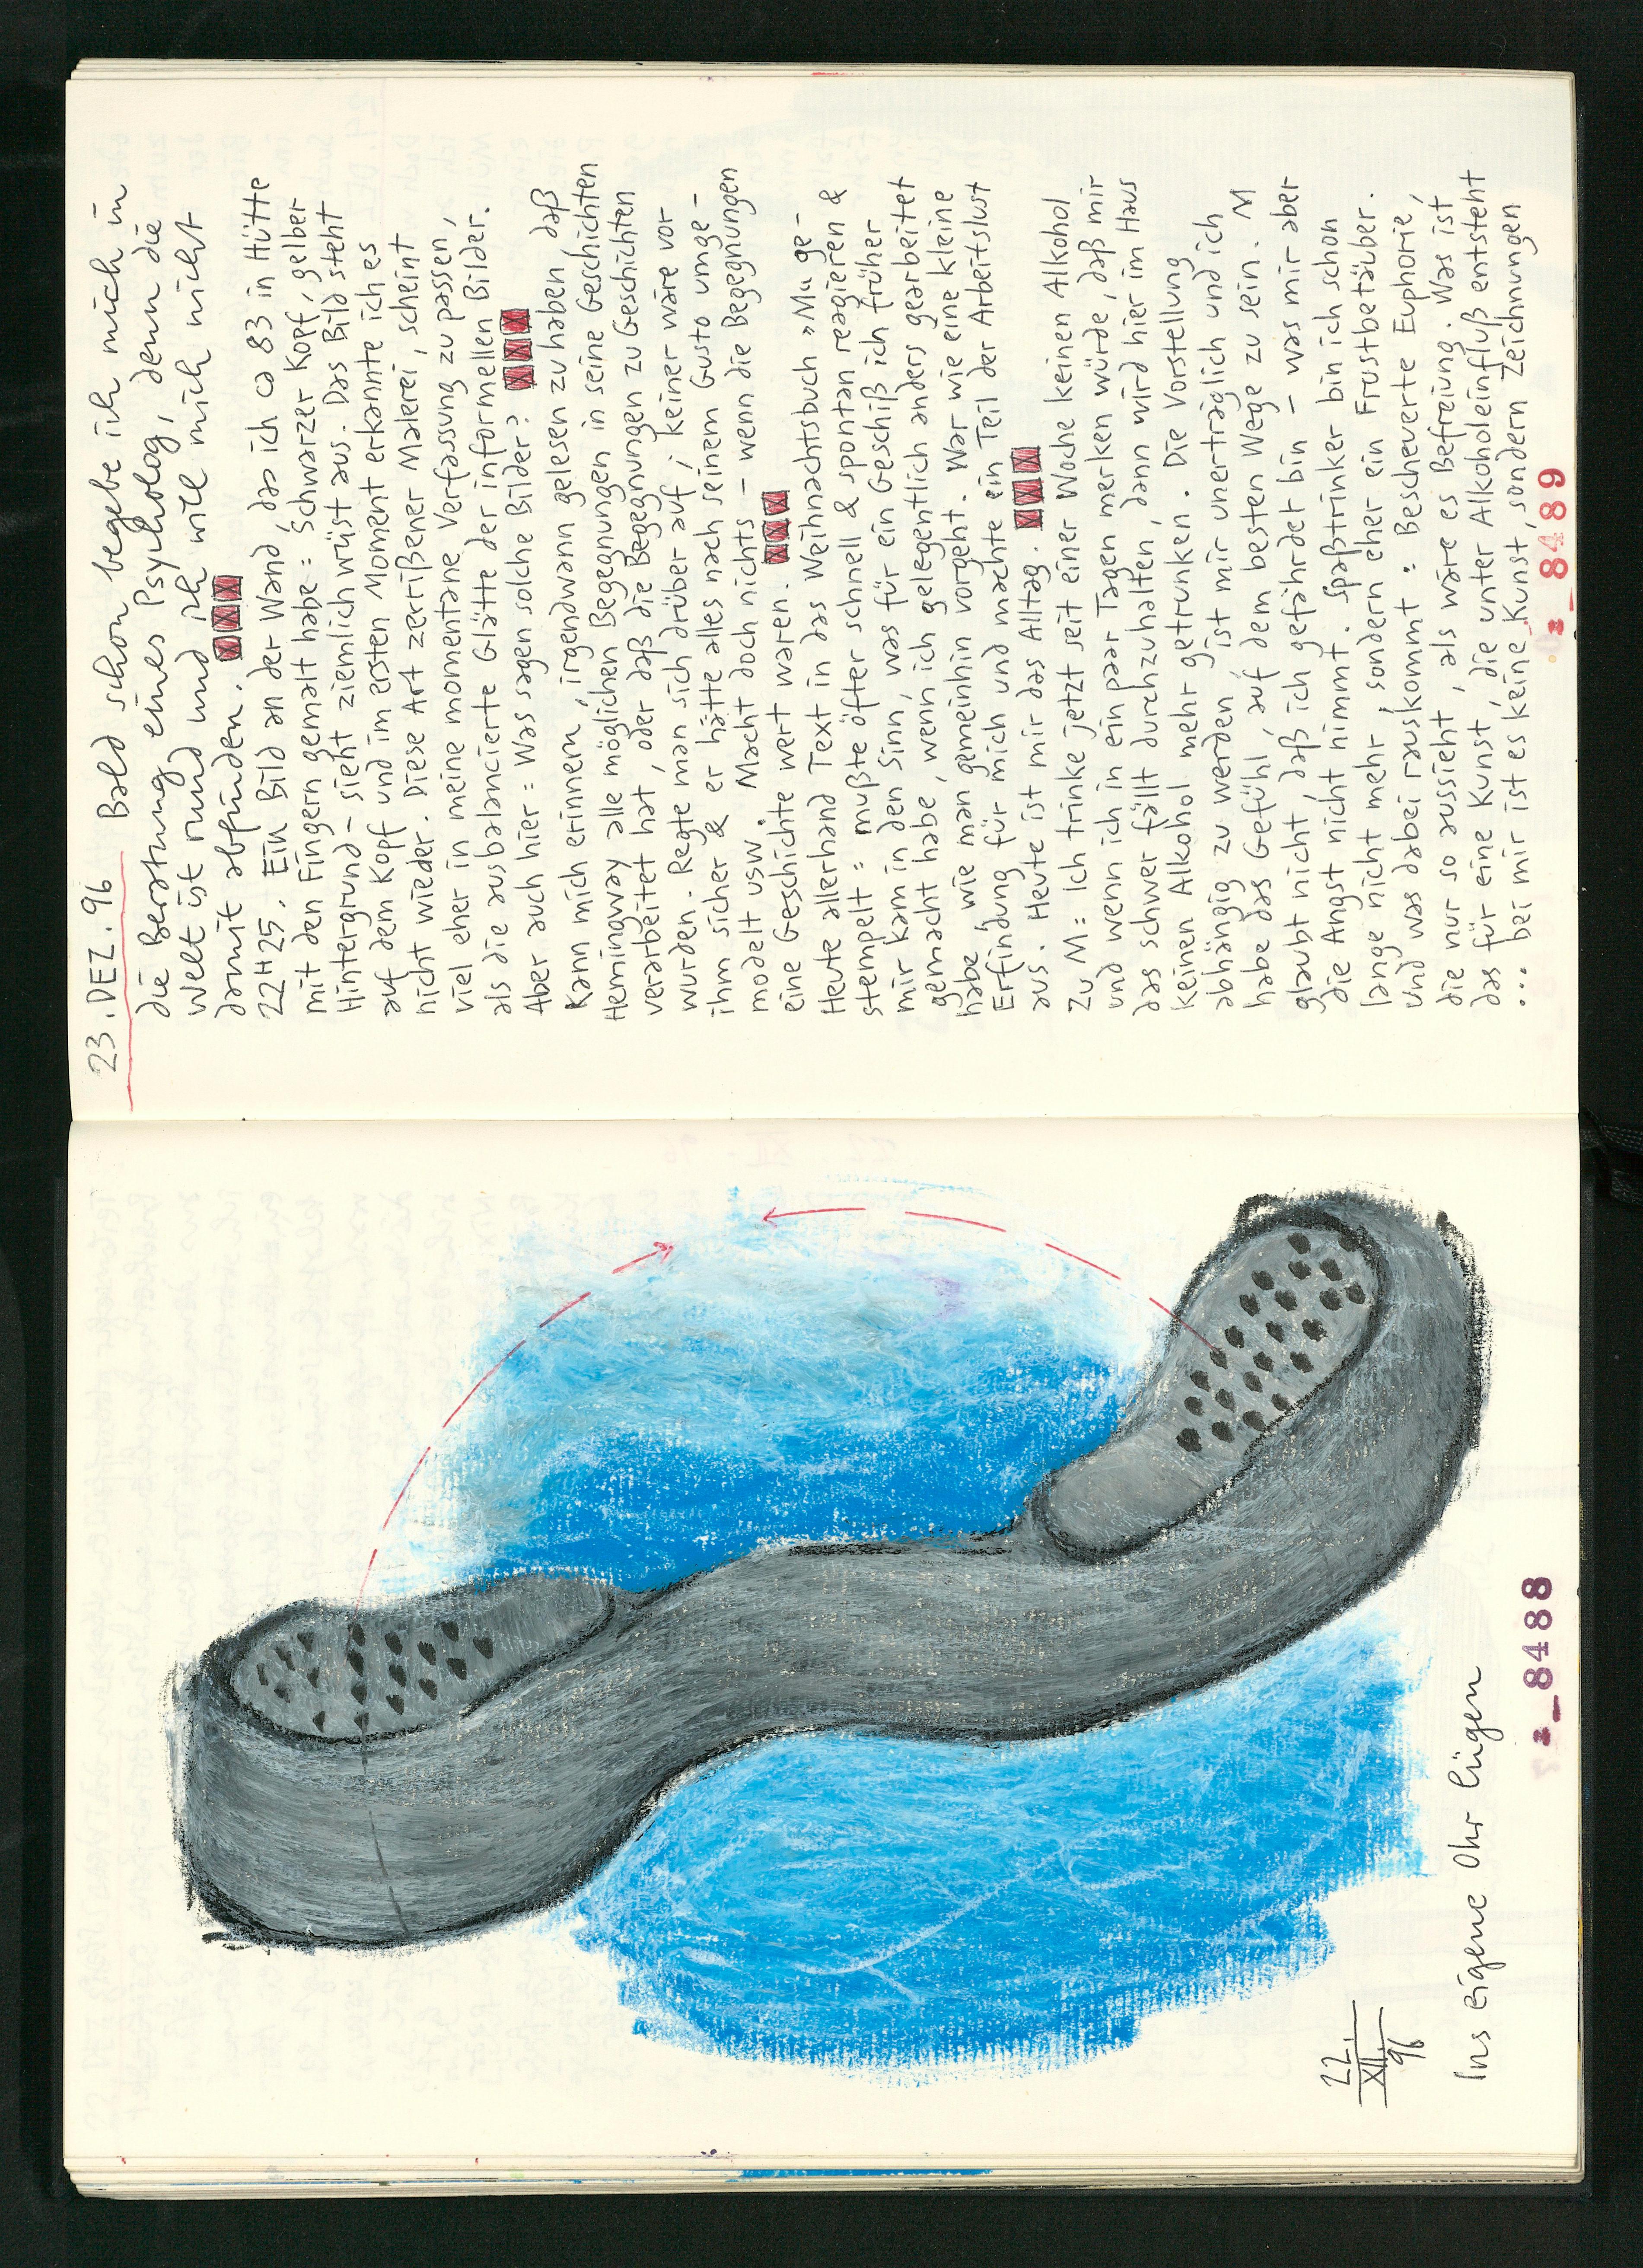 22.
XII.
96
Ins eigene Ohr lügen
_8488
23. DEZ. 96 Bald schon begebe ich mich in
die Beratung eines Psycholog, denn die
Welt ist rund und ich will mich nicht
damit abfinden.
22H25. Ein Bild an der Wand, das ich ca 83 in Hütte
mit den Fingern gemalt habe = Schwarzer Kopf, gelber
Hintergrund – sieht ziemlich wüst aus. Das Bild steht
auf dem Kopf und im ersten Moment erkannte ich es
nicht wieder. Diese Art zerrißener Malerei, scheint
viel eher in meine momentane Verfassung zu passen,
als die ausbalancierte Glätte der informellen Bilder.
Aber auch hier = Was sagen solche Bilder?
Kann mich erinnern, irgendwann gelesen zu haben, daß
Hemingway alle möglichen Begegnungen in seine Geschichten
verarbeitet hat, oder daß die Begegnungen zu Geschichten
wurden. Regte man sich drüber auf, keiner wäre vor
ihm sicher & er hätte alles nach seinem Gusto umge-
modelt usw. Macht doch nichts – wenn die Begegnungen
eine Geschichte wert waren.
Heute allerhand Text in das Weihnachtsbuch »Mu ge-
stempelt = mußte öfter schnell & spontan reagieren &
mir kam in den Sinn, was für ein Geschiß ich früher
gemacht habe, wenn ich gelegentlich anders gearbeitet
habe, wie man gemeinhin vorgeht. War wie eine kleine
Erfindung für mich und machte ein Teil der Arbeitslust
aus. Heute ist mir das Alltag.
Zu M = Ich trinke jetzt seit einer Woche keinen Alkohol
und wenn ich in ein paar Tagen merken würde, daß mir
das schwer fällt durchzuhalten, dann wird hier im Haus
keinen Alkohol mehr getrunken. Die Vorstellung
abhängig zu werden, ist mir unerträglich und ich
habe das Gefühl, auf dem besten Wege zu sein. M
glaubt nicht, daß ich gefährdet bin – was mir aber
die Angst nicht nimmt. Spaßtrinker bin ich schon
lange nicht mehr, sondern eher ein Frustbetäuber.
Und was dabei rauskommt = Bescheverte Euphorie,
die nur so aussieht, als wäre es Befreiung. Was ist
das für eine Kunst, die unter Alkoholeinfluß entsteht
... bei mir ist es keine Kunst, sondern Zeichnungen
_8489